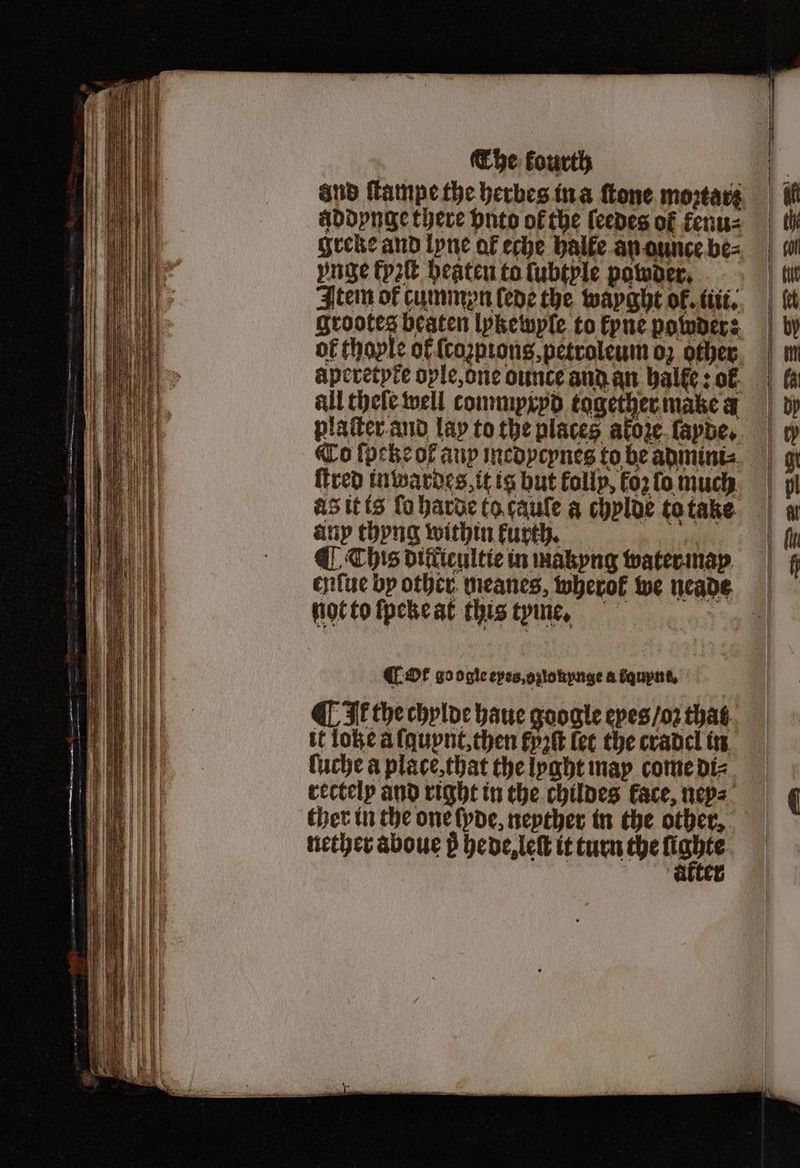 The fourth
and ſtampe the herbes in a ſtone mortare
addynge there vnto of the ſeedes of fenu=
greke and lyne of eche halfe an ounce be=
ynge fyrſt beaten to ſubtyle powder.
Item of cummyn ſede the wayght of .iiii.
grootes beaten lykewyſe to fyne powder:
of thoyle of ſcorpions, petroleum or other
aperetyfe oyle, one ounce and an halfe : of
all theſe well commyxyd together make a
plaſter and lay to the places afore ſayde.
To ſpeke of any medycynes to be admini=
ſtred inwardes, it is but folly, for ſo much
as it is ſo harde to cauſe a chylde to take
any thyng within furth.
¶ This difficultie in makyng water may
enſue by other meanes, wherof we neade
not to ſpeke at this tyme.
¶ Of google eyes, or lokynge a ſquynt.
¶ If the chylde haue google eyes / or that
it loke a ſquynt, then fyrſt ſet the cradel in
ſuche a place, that the lyght may come di=
rectely and right in the childes face, ney=
ther in the one ſyde, neyther in the other,
nether aboue þͤ hede, leſt it turn the ſighte
after